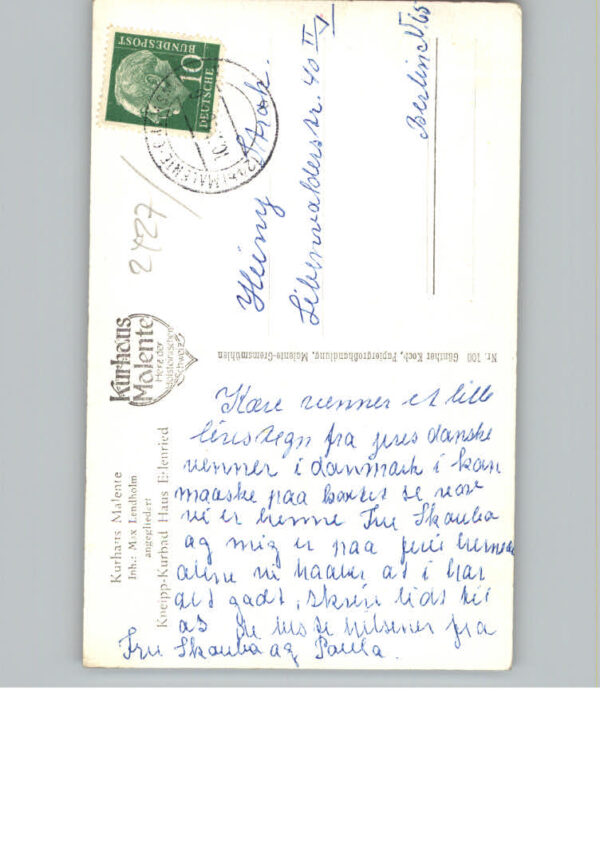 Kære venner et lille
livstegn fra jeres danske
venner i danmark i kan
maaske paa kortet se vor
vi er henne Fru Skauba
ag mig er paa ferie herned
alene vi haaber at i har
det gadt, skriv lidt til
as de beste hilsener fra
Fru Skauba ag Paula.
Heiny
Libenwalderstr. 40 II
Berlin N 65
10
DEUTSCHE
BUNDESPOST
MALENTE
2427/
Kurhaus
Malente
Herz der
Holsteinischen
Schweiz
Nr. 100 Günther Koch, Papiergroßhandlung, Malente-Gremsmühlen
Kurhaus Malente
Inh.: Max Lendholm
angegliedert
Kneipp-Kurbad Haus Erlenried